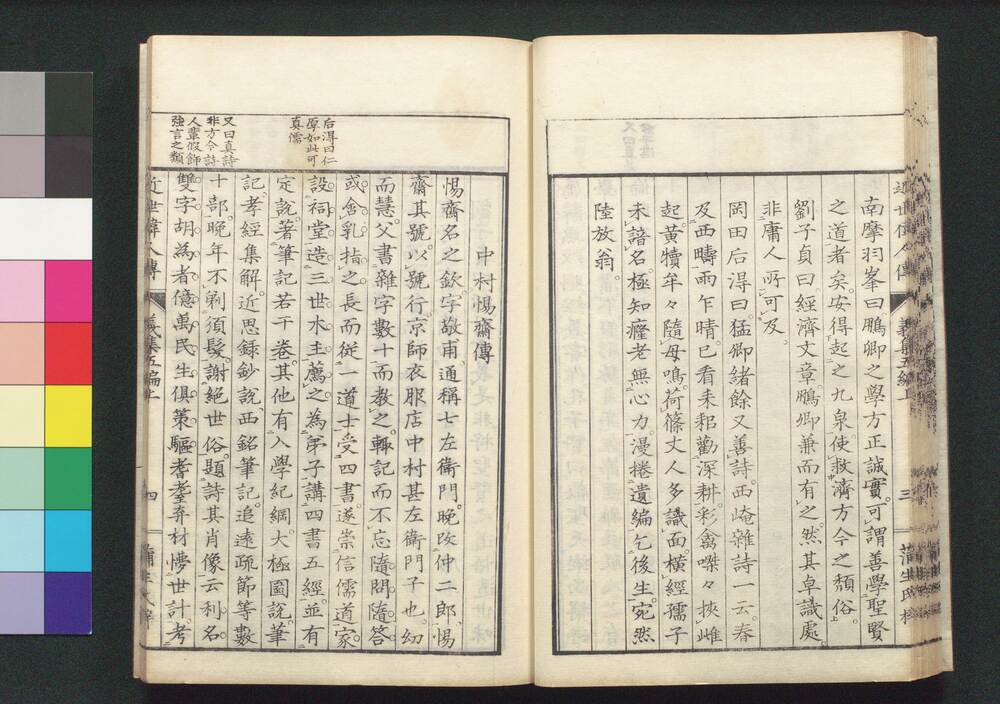 南摩羽峯曰鵬卿之學方正誠實可謂善學聖賢
之道者矣安得起之九泉使救濟方今之頽俗
劉子貞曰經濟文章鵬卿兼而有之然其卓識處
非庸人所可及
岡田后得曰猛卿緒餘又善詩西崦雜詩一云春
及西疇雨乍晴已看耒耜勸深耕彩禽喋々挾雌
起黄犢牟々隨母鳴荷篠丈人多識面横經孺子
未諳名極知癃老無心力漫捲遺編乞後生宛然
陸放翁
近世偉人傳
義集五編上
三
蒲生氏
后得曰仁
厚如此可
真儒
又曰真詩
非方今詩
人輩假飾
強言之類
中村惕齋傳
惕齋名之欽字敬甫通稱七左衛門晩改仲二郎惕
齋其號以號行京師衣服店中村甚左衛門子也幼
而慧父書雜字數十而教之輙記而不忘隨問隨答
或含乳指之長而従一道士受四書遂崇信儒道家
設祠堂造三世木主薦之為弟子講四書五經並有
定説著筆記若干卷其他有入學紀綱大極圖説筆
記孝經集解近思録鈔説西銘筆記追遠疏節等數
十部晩年不剃須髮謝絶世俗題詩其肖像云利名
雙字胡為者億萬民生俱策驅耆耋弃材懜世計考
近世偉人傳
義集五編上
四
蒲生氏